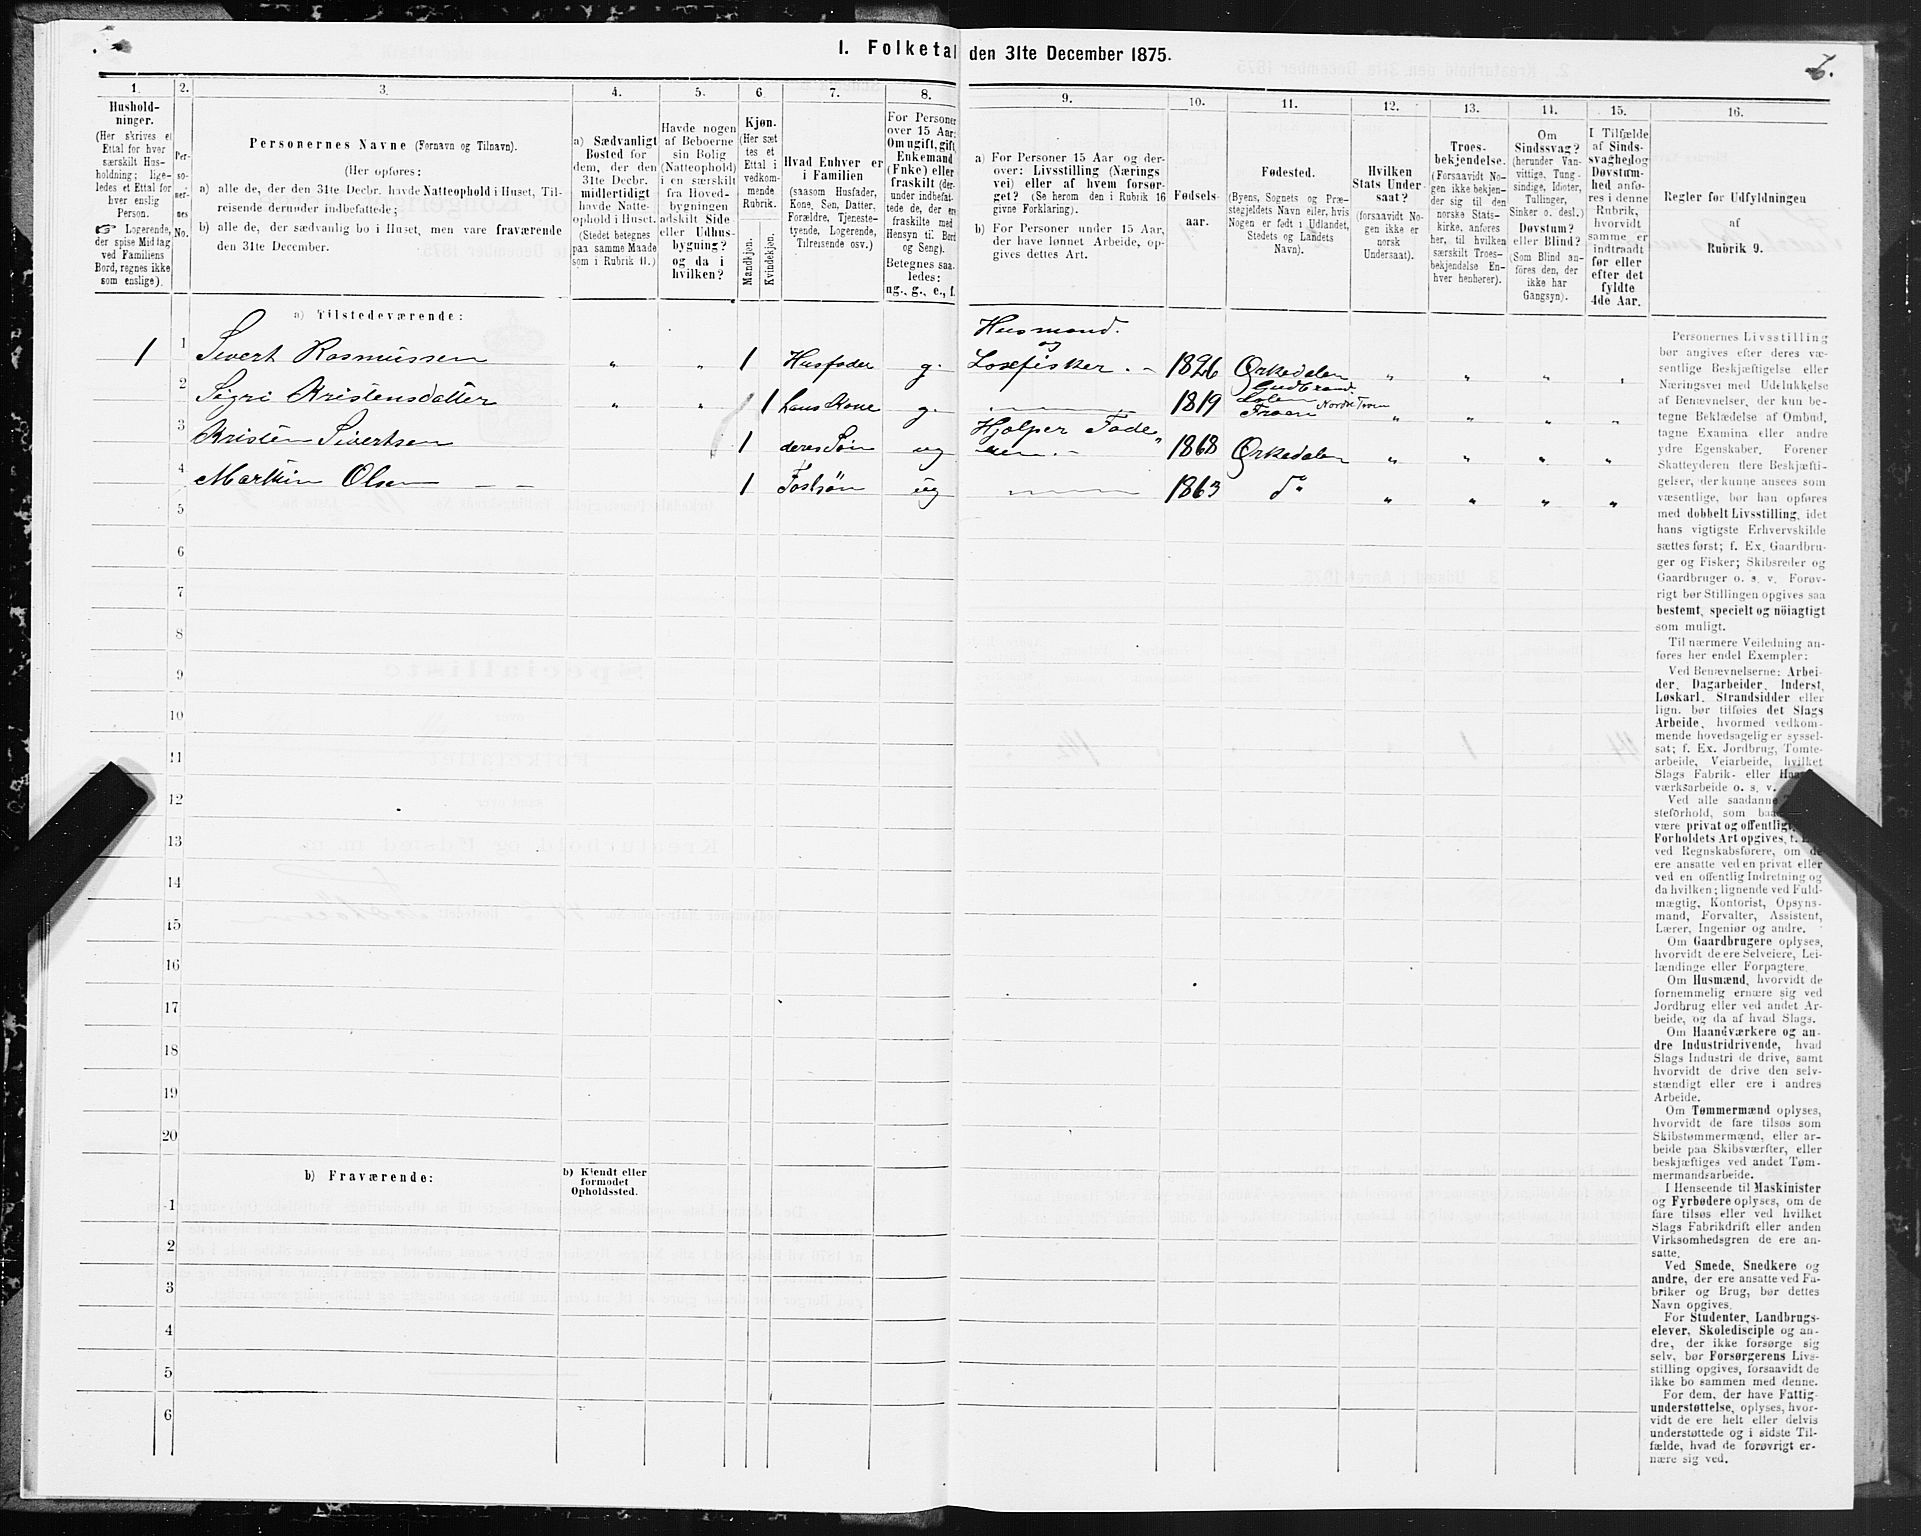 1. Folketal den 31te December 1875.
1.
2.
3.
4.
5.
6.
7.
8.
9.
10.
11.
12.
13.
14.
15.
16.
Hushold-
ninger.
(Her skrives et
Ettal for hver
særskilt Hus-
holdning; lige-
ledes et Ettal for
hver enslig
Person.
☞ Logerende,
der spise Middag
ved Familiens
Bord, regnes ikke
som enslige).
Per-
so-
ner-
nes
No.
Personernes Navne (Fornavn og Tilnavn).
(Her opføres:
a) alle de, der den 31te Decbr. havde Natteophold i Huset, Til-
reisende derunder indbefattede;
b) alle de, der sædvanlig bo i Huset, men vare fraværende
den 31te December.
a) Sædvanligt
Bosted for
dem, der den
31te Decbr.
midlertidigt
havde Natte-
ophold i Huset.
(Stedet betegnes
paa samme Maade
som i Rubrik 11.)
Havde nogen
af Beboerne
sin Bolig
(Natteophold)
i en særskilt
fra Hoved-
bygningen
adskilt Side-
eller Udhus-
bygning?
og da i
hvilken?
Kjøn.
(Her sæt-
tes et
Ettal i
vedkom-
mende
Rubrik.
Mandkjøn.
Kvindekjøn.
Hvad Enhver er
i Familien
(saasom Husfader,
Kone, Søn, Datter,
Forældre, Tjeneste-
tyende, Logerende,
Tilreisende osv.)
For Personer
over 15 Aar:
Om ugift, gift,
Enkemand
(Enke) eller
fraskilt (der-
under indbefat-
tede de, der ere
fraskilte med
Hensyn til Bord
og Seng).
Betegnes saa-
ledes:
ug., g., e., f.
a) For Personer 15 Aar og der-
over: Livsstilling (Nærings-
vei) eller af hvem forsør-
get? (Se herom den i Rubrik 16
givne Forklaring).
b) For Personer under 15 Aar,
der have lønnet Arbeide, op-
gives dettes Art.
Fødsels-
aar.
Fødested.
(Byens, Sognets og Præ-
stegjeldets Navn eller, hvis
Nogen er født i Udlandet,
Stedets og Landets
Navn).
Hvilken
Stats Under-
saat?
(forsaavidt No-
gen ikke er
norsk
Undersaat).
Troes-
bekjendelse.
(Forsaavidt No-
gen ikke bekjen-
der sig til den
norske Stats-
kirke, anføres
her, til hvilken
særskilt Troes-
bekjendelse En-
hver henhører).
Om
Sindssvag?
(herunder Van-
vittige, Tung-
sindige, Idioter,
Tullinger,
Sinker o. desl.)
Døvstum?
eller Blind?
(Som Blind an-
føres den, der
ikke har
Gangsyn).
I Tilfælde
af Sinds-
svaghed og
Døvstum-
hed anfø-
res i denne
Rubrik,
hvorvidt
samme er
indtraadt
før eller
efter det
fyldte
4de Aar.
Regler for Udfyldningen
af
Rubrik 9.
a) Tilstedeværende:
Husmand.
og
1 1 Sivert Rasmussen " " 1 Husfader g. Losefisker. – 1826 Orkedalen " " " "
2 Sigri Kristensdatter " " 1 hans Kone g. 1819 Gudbrandsdalen Nordre Froen " " " "
3 Kristen Sivertsen 1 deres Søn ug Hjælper Fade-
ren. – 1868 Orkedalen " " " "
4 Martin Olsen – – 1 Fostsøn ug 1863 do " " " "
5
6
7
8
9
10
11
12
13
14
15
16
17
18
19
20
b) Fraværende:
b) Kjendt eller
formodet
Opholdssted.
1
2
3
4
5
6
Personernes Livsstilling
bør angives efter deres væ-
sentlige Beskjæftigelse eller
Næringsvei med Udelukkelse
af Benævnelser, der kun be-
tegne Beklædelse af Ombud,
tagne Examina eller andre
ydre Egenskaber. Forener
Skatteyderen flere Beskjæfti-
gelser, der kunne ansees som
væsentlige, bør han opføres
med dobbelt Livsstilling, idet
hans vigtigste Erhvervskilde
sættes først; f. Ex. Gaardbru-
ger og Fisker; Skibsreder og
Gaardbruger o. s. v. Forøv-
rigt bør Stillingen opgives saa
bestemt, specielt og nöiagtigt
som muligt.
Til nærmere Veiledning an-
føres her endel Exempler:
Ved Benævnelserne: Arbei-
der, Dagarbeider, Inderst,
Løskarl, Strandsidder eller
lign. bør tilføies det Slags
Arbeide, hvormed vedkom-
mende hovedsagelig er syssel-
sat; f. Ex. Jordbrug, Tomte-
arbeide, Veiarbeide, hvilket
Slags Fabrik- eller
værksarbeide o. s. v.
Ved alle saadanne
steforhold, som
være privat og offentlig,
Forholdets Art opgives, t.
ved Regnskabsførere, om de
ere ansatte ved en privat eller
ved en offentlig Indretning og
da hvilken; lignende ved Fuld-
mægtig, Kontorist, Opsyns-
mand, Forvalter, Assistent,
Lærer, Ingeniør og andre.
Om Gaardbrugere oplyses,
hvorvidt de ere Selveiere, Lei-
lændinge eller Forpagtere.
Om Husmænd, hvorvidt de
fornemmelig ernære sig ved
Jordbrug eller ved andet Ar-
beide, og da af hvad Slags.
Om Haandværkere og an-
dre Industridrivende, hvad
Slags Industri de drive, samt
hvorvidt de drive den selv-
stændigt eller ere i andres
Arbeide.
Om Tømmermænd oplyses,
hvorvidt de fare tilsøs som
Skibstømmermænd, eller ar-
beide paa Skibsværfter, eller
beskjæftiges ved andet Tøm-
mermandsarbeide.
I Henseende til Maskinister
og Fyrbødere oplyses, om de
fare tilsøs eller ved hvilket
Slags Fabrikdrift eller anden
Virksomhedsgren de ere an-
satte.
Ved Smede, Snedkere og
andre, der ere ansatte ved Fa-
briker og Brug, bør dettes
Navn opgives.
For Studenter, Landbrugs-
elever, Skoledisciple og an-
dre, der ikke forsørge sig
selv, bør Forsørgerens Livs-
stilling opgives, forsaavidt de
ikke bo sammen med denne.
For dem, der have Fattig-
understøttelse, oplyses, hvor-
vidt de ere helt eller delvis
understøttede og i sidste Til-
fælde, hvad de forøvrigt er-
nære sig ved.